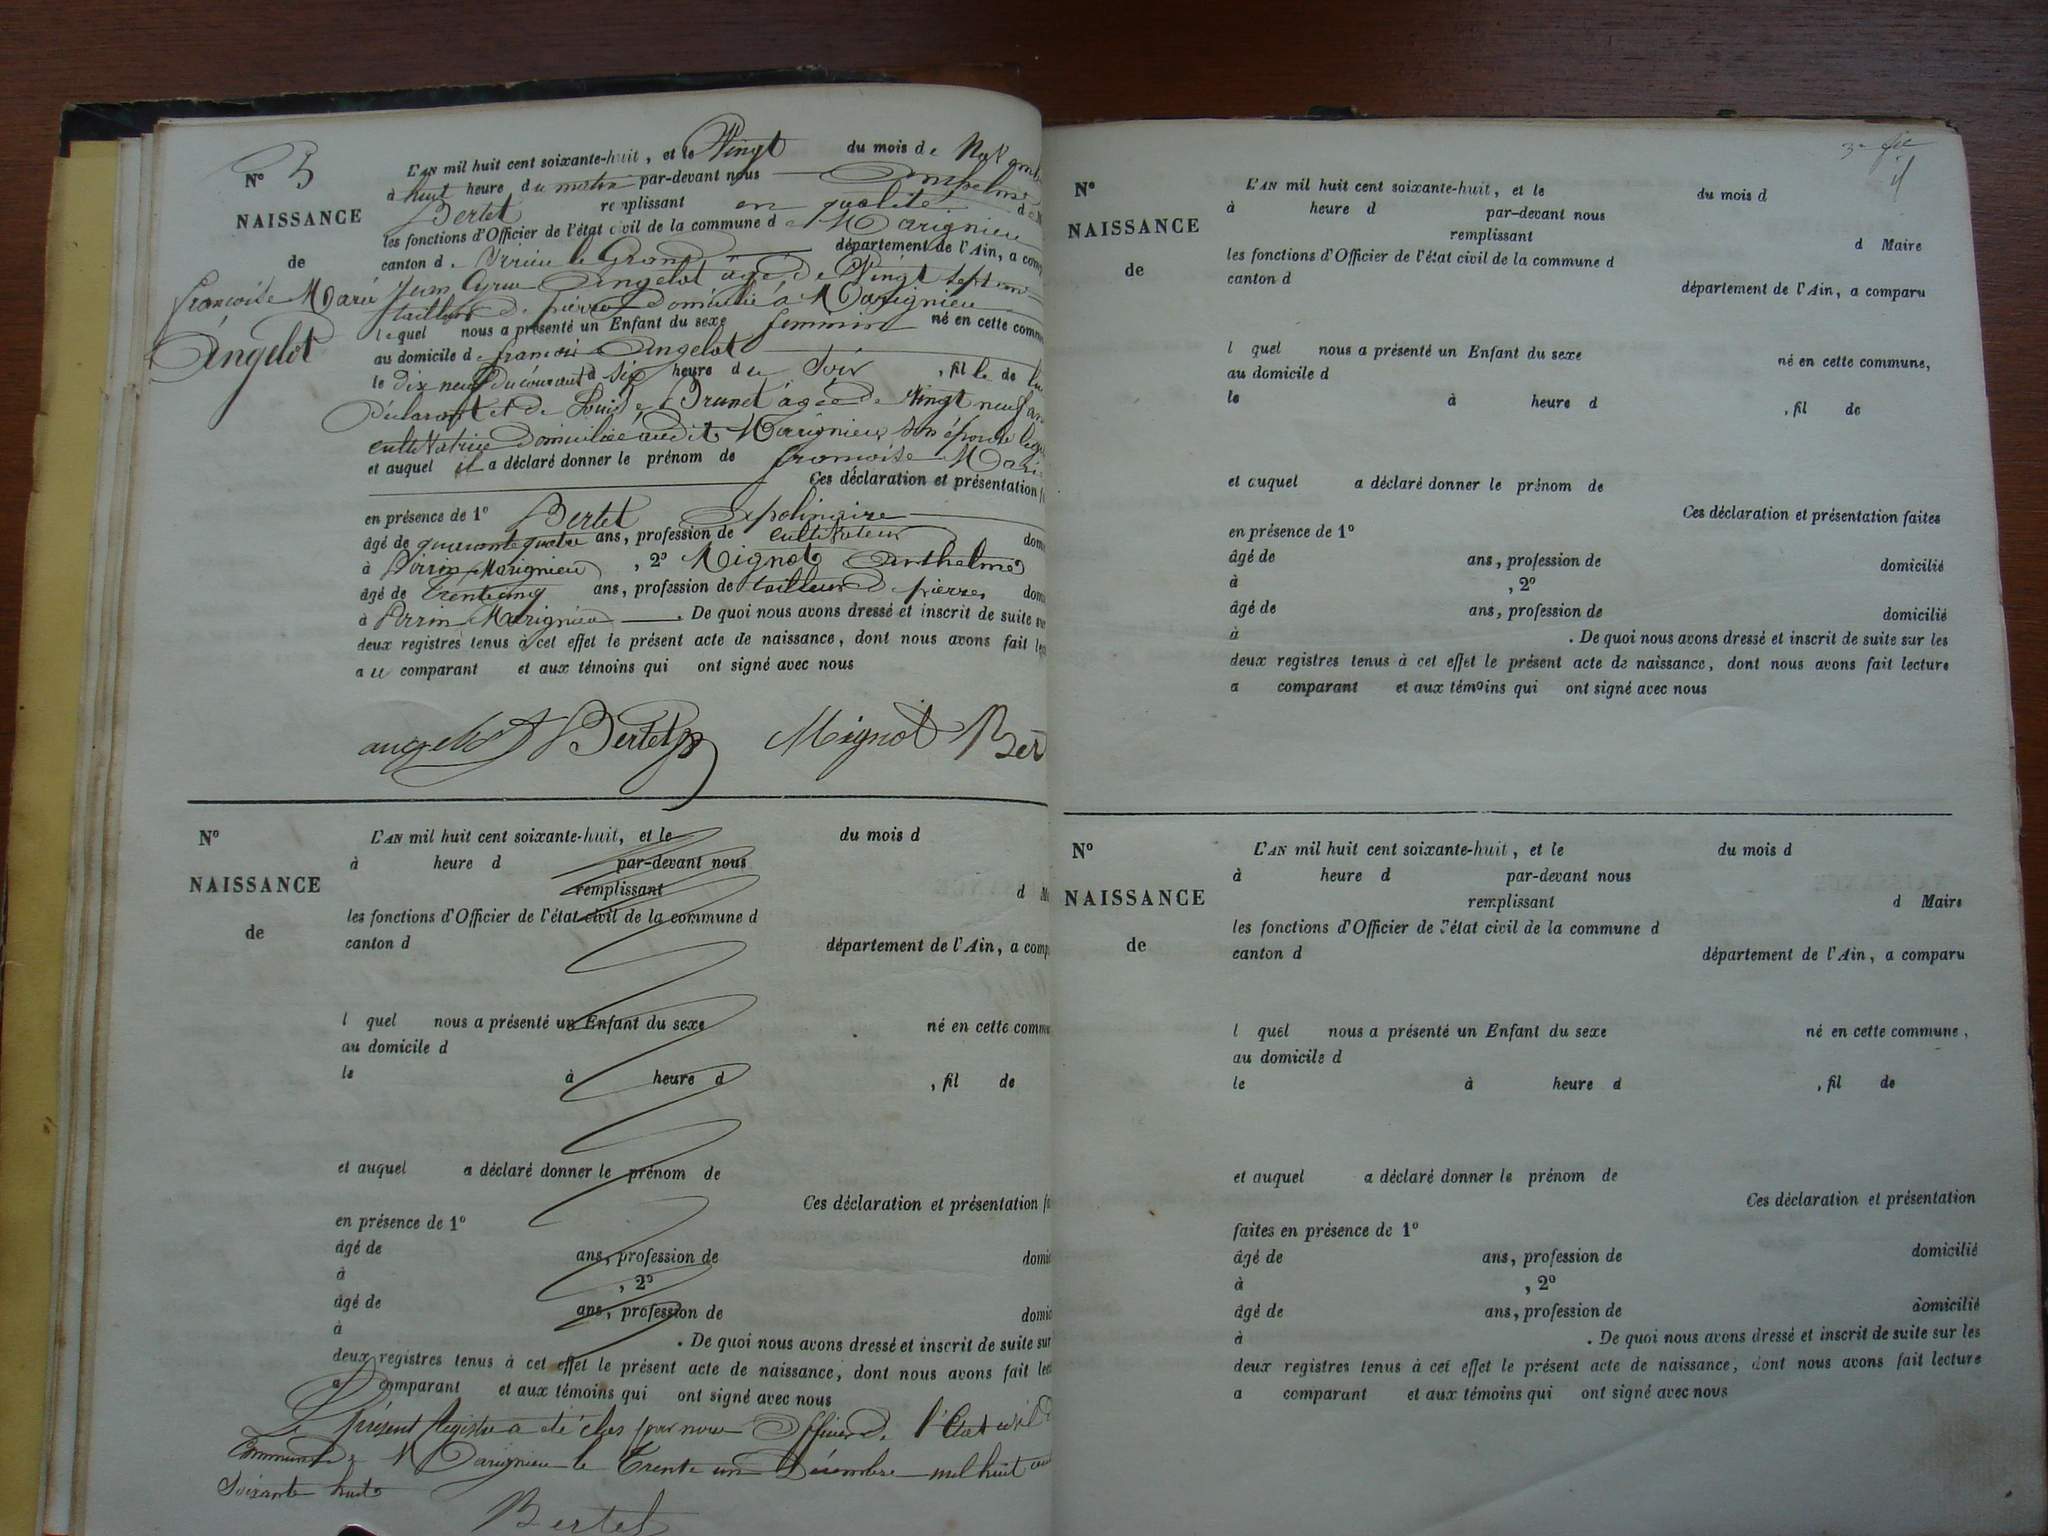 N° 5
NAISSANCE
de
Françoise Marie
Angelot
L'AN mil huit cent soixante-huit, et le Vingt du mois de
à huit heure du matin par-devant nous Anthelme
Bertet remplissant en qualité de
les fonctions d'Officier de l'état civil de la commune de Marignieu
canton de Virieu le Grand département de l'Ain, a comp
Angelot âgé de Vingt sept ans
tailleur de pierre domicilié à Marignieu
lequel nous a présenté un Enfant du sexe feminin né en cette comm
au domicile de françois Angelot
le dix neuf du courant à six heure du Soir, fille de lui
déclarant et de Louise Brunet âgée de vingt neuf ans
cultivatrice domiciliée audit Marignieu son épouse
et auquel il a déclaré donner le prénom de françoise Marie
Ces déclaration et présentation
en présence de 1° Bertet Apolinaire
âgé de quarante quatre ans, profession de cultivateur dom
à Poirin Marignieu, 2° Mignot Anthelme
âgé de trente cinq ans, profession de tailleur de pierres dom
à Poirin Marignieu. De quoi nous avons dressé et inscrit de suite sur
deux registres tenus à cet effet le présent acte de naissance, dont nous avons fait
au comparant et aux témoins qui ont signé avec nous
angelot Bertet Mignot Ber
N°
NAISSANCE
de
L'AN mil huit cent soixante-huit, et le du mois d
à heure d par-devant nous
remplissant d
les fonctions d'Officier de l'état civil de la commune d
canton d département de l'Ain, a comp
l quel nous a présenté un Enfant du sexe né en cette comm
au domicile d
le à heure d , fil de
et auquel a déclaré donner le prénom de
Ces déclaration et présentation
en présence de 1°
âgé de ans, profession de domic
à , 2°
âgé de ans, profession de domic
à . De quoi nous avons dressé et inscrit de suite sur
deux registres tenus à cet effet le présent acte de naissance, dont nous avons fait
a comparant et aux témoins qui ont signé avec nous
Le présent Registre a été clos par nous Officier de l'Etat civil
Commune de Marignieu le Trente un Décembre mil huit cent
Soixante huit
Bertet
N°
NAISSANCE
de
L'AN mil huit cent soixante-huit, et le du mois d
à heure d par-devant nous
remplissant d Maire
les fonctions d'Officier de l'état civil de la commune d
canton d département de l'Ain, a comparu
l quel nous a présenté un Enfant du sexe né en cette commune,
au domicile d
le à heure d , fil de
et auquel a déclaré donner le prénom de
Ces déclaration et présentation faites
en présence de 1°
âgé de ans, profession de domicilié
à , 2°
âgé de ans, profession de domicilié
à . De quoi nous avons dressé et inscrit de suite sur les
deux registres tenus à cet effet le présent acte de naissance, dont nous avons fait lecture
a comparant et aux témoins qui ont signé avec nous
N°
NAISSANCE
de
L'AN mil huit cent soixante-huit, et le du mois d
à heure d par-devant nous
remplissant d Maire
les fonctions d'Officier de l'état civil de la commune d
canton d département de l'Ain, a comparu
l quel nous a présenté un Enfant du sexe né en cette commune,
au domicile d
le à heure d , fil de
et auquel a déclaré donner le prénom de
Ces déclaration et présentation
faites en présence de 1°
âgé de ans, profession de domicilié
à , 2°
âgé de ans, profession de domicilié
à . De quoi nous avons dressé et inscrit de suite sur les
deux registres tenus à cet effet le présent acte de naissance, dont nous avons fait lecture
a comparant et aux témoins qui ont signé avec nous